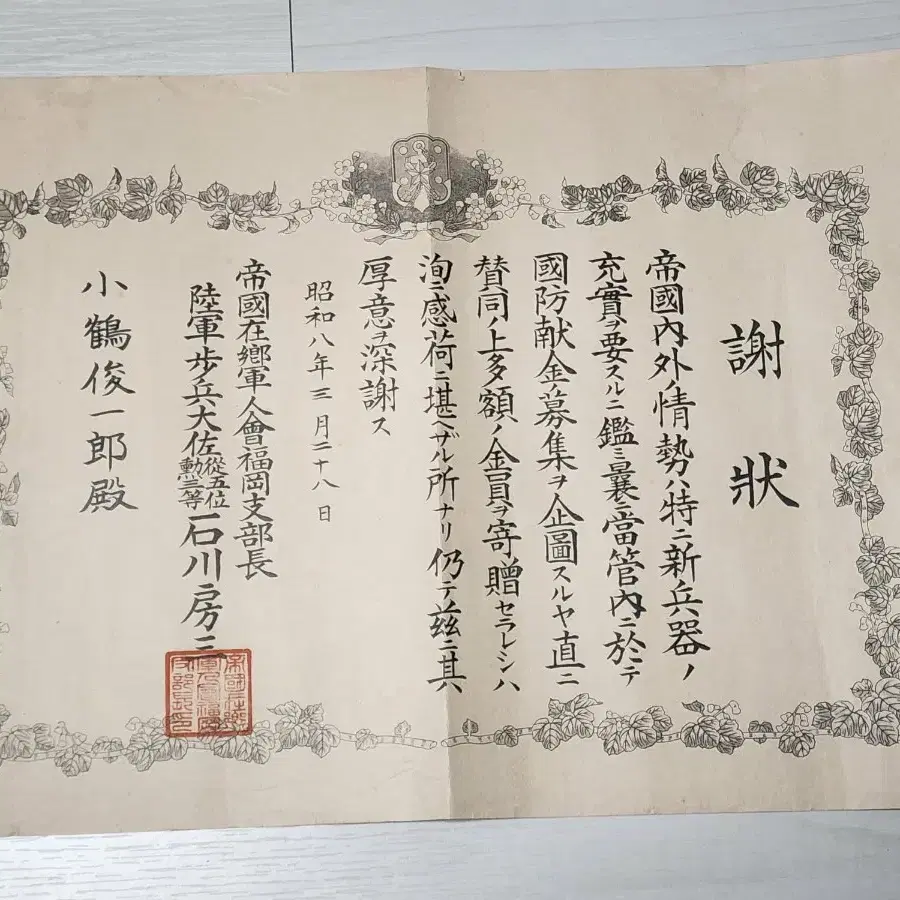 謝狀
帝國內外ノ情勢ハ特ニ新兵器ノ
充實ヲ要スルニ鑑ミ曩ニ當管內ニ於テ
國防献金ノ募集ヲ企圖スルヤ直ニ
賛同ノ上多額ノ金員ヲ寄贈セラレシハ
洵ニ感荷ニ堪ヘザル所ナリ仍テ茲ニ其
厚意ヲ深謝ス
昭和八年三月二十八日
帝國在鄕軍人會福岡支部長
陸軍步兵大佐從五位勳三等石川房三
小鶴俊一郎殿